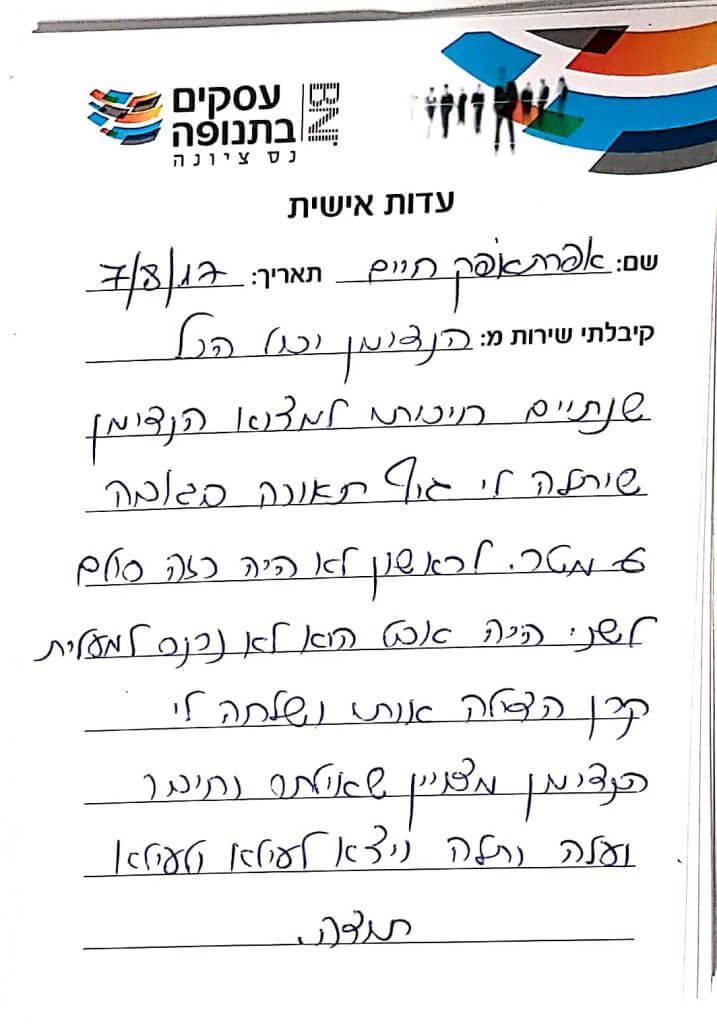 עסקים
בתנופה
נס ציונה
BNI
עדות אישית
שם: אפרת אפק חיים תאריך: 7/8/17
קיבלתי שירות מ: הנדימן יכול הכל
שנתיים חיכיתי למצוא הנדימן
שיתלה לי גוף תאורה בגובה
6 מטר. לראשון לא היה כזה סולם
לשני היה אבל הוא לא נכנס למעלית
קרן הצילה אותי ושלחה לי
הנדימן מצויין שאילתר וחיבר
ועלה ותלה ויצא לעילא ולעילא
תודה.